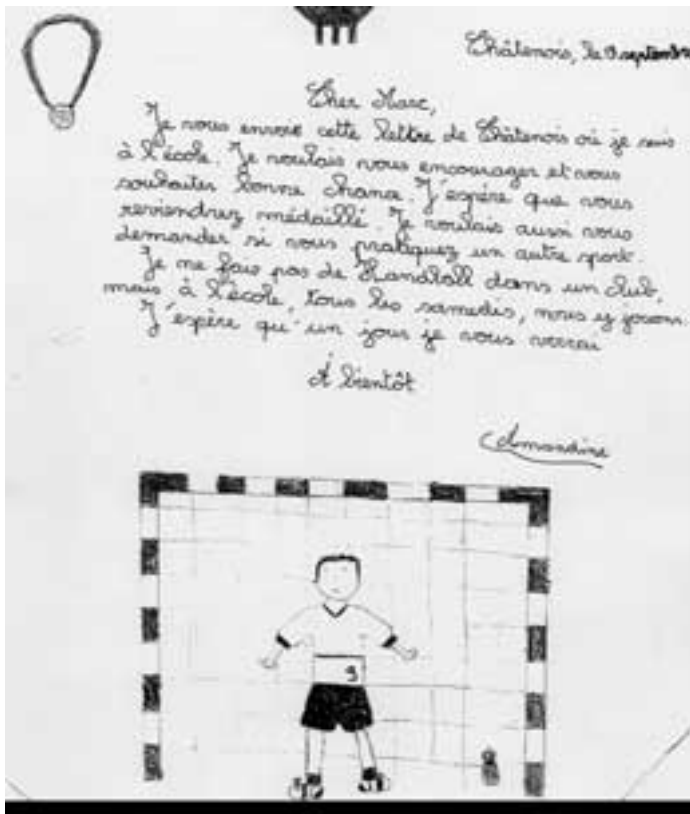 Châtenois, le septembre
Cher Marc,
Je vous envoie cette lettre de Châtenois où je suis
à l'école. Je voulais vous encourager et vous
souhaiter bonne chance. J'espère que vous
reviendrez médaillé. Je voulais aussi vous
demander si vous pratiquez un autre sport.
Je ne fais pas de Handball dans un club,
mais à l'école, tous les samedis, nous y jouons.
J'espère qu'un jour je vous verrai
A bientôt
Amandine
9